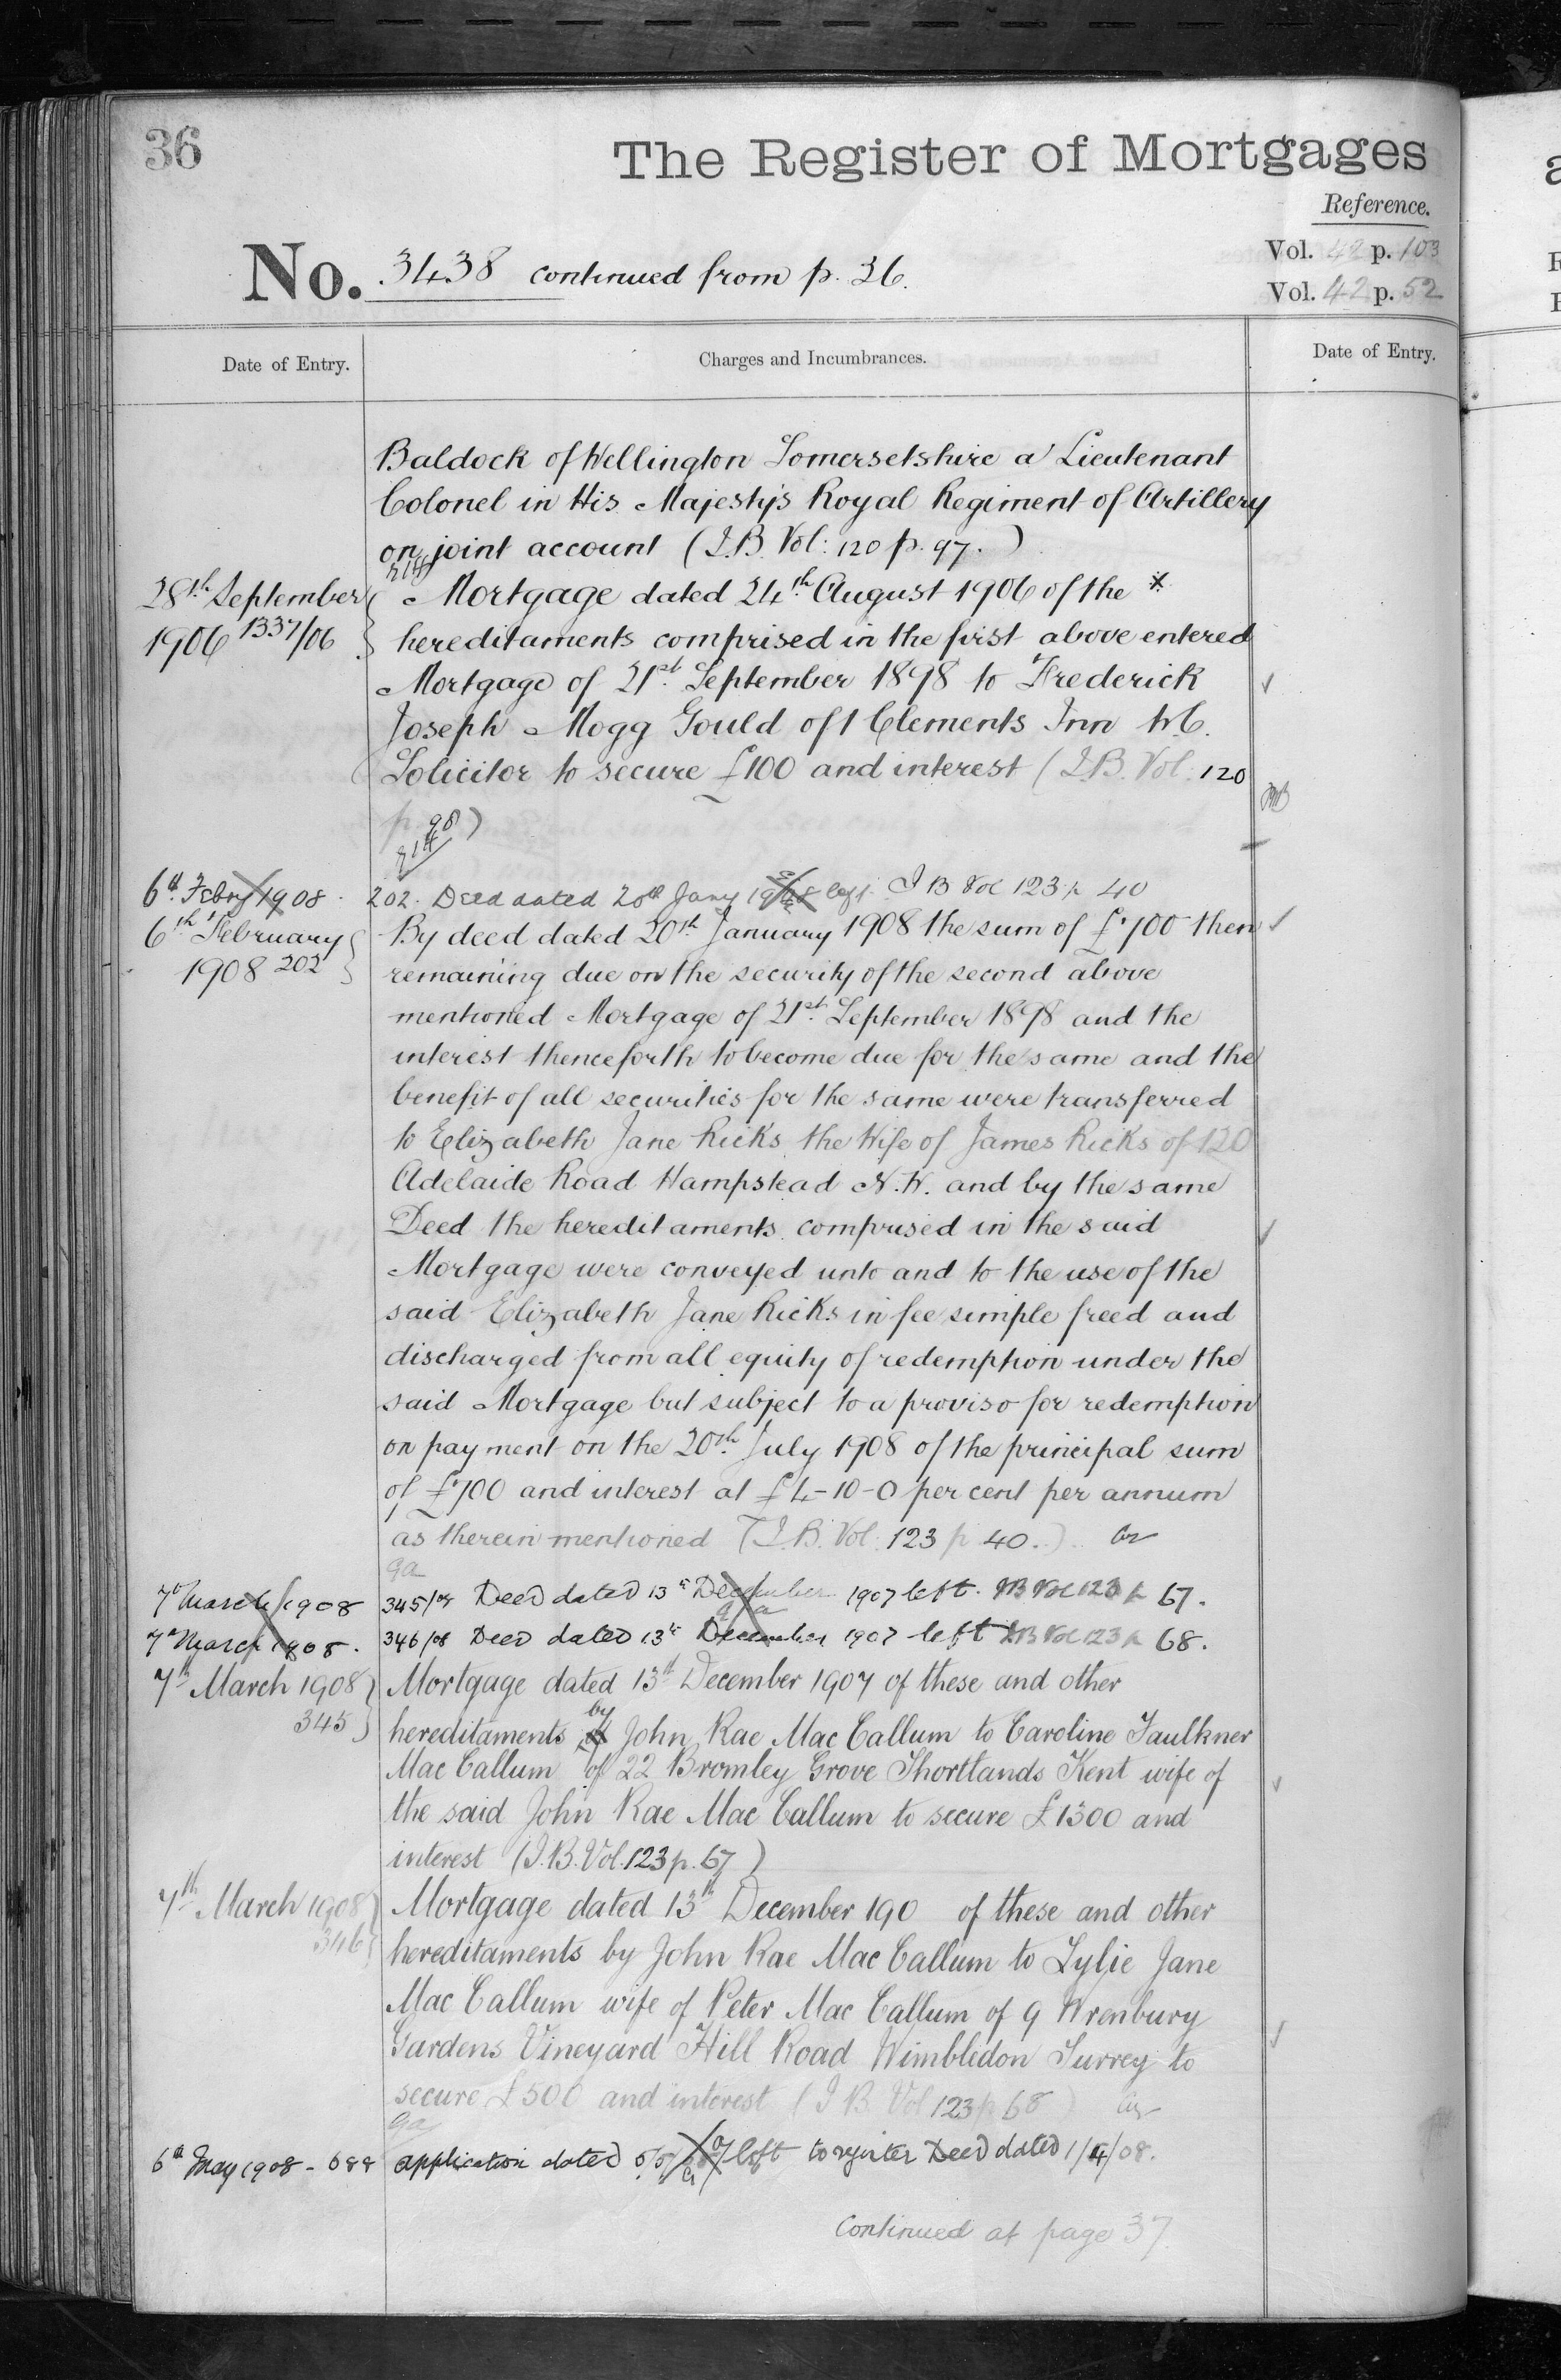 36
The Register of Mortgages
Reference.
No. 3438 continued from p. 26.
Vol. 42 p. 103
Vol. 42 p. 52
Date of Entry.
Charges and Incumbrances.
Date of Entry.
Baldock of Wellington Somersetshire a Lieutenant
Colonel in His Majesty's Royal Regiment of Artillery
on joint account (I.B. Vol: 120 p. 97.)
28th September
1906 1337/06
Mortgage dated 24th August 1906 of the
hereditaments comprised in the first above entered
Mortgage of 21st September 1898 to Frederick
Joseph Mogg Gould of 1 Clements Inn W.C.
Solicitor to secure £100 and interest (I.B. Vol: 120
p 98)
6th Febry 1908 202. Deed dated 20th Jany 1908 left I B Vol 123 p 40
6th February
1908 202
By deed dated 20th January 1908 the sum of £700 then
remaining due on the security of the second above
mentioned Mortgage of 21st September 1898 and the
interest thenceforth to become due for the same and the
benefit of all securities for the same were transferred
to Elizabeth Jane Ricks the Wife of James Ricks of 120
Adelaide Road Hampstead N.W. and by the same
Deed the hereditaments comprised in the said
Mortgage were conveyed unto and to the use of the
said Elizabeth Jane Ricks in fee simple freed and
discharged from all equity of redemption under the
said Mortgage but subject to a proviso for redemption
on payment on the 20th July 1908 of the principal sum
of £700 and interest at £4-10-0 per cent per annum
as therein mentioned (I.B. Vol: 123 p 40.)
7th March 1908 345/08 Deed dated 13th December 1907 left. IB Vol 123 p 67.
7th March 1908. 346/08 Deed dated 13th December 1907 left IB Vol 123 p 68.
7th March 1908
345
Mortgage dated 13th December 1907 of these and other
hereditaments of by John Rae Mac Callum to Caroline Faulkner
Mac Callum of 22 Bromley Grove Shortlands Kent wife of
the said John Rae Mac Callum to secure £1300 and
interest (I.B. Vol. 123 p. 67)
7th March 1908
346
Mortgage dated 13th December 190 of these and other
hereditaments by John Rae Mac Callum to Lylie Jane
Mac Callum wife of Peter Mac Callum of 9 Wrenbury
Gardens Vineyard Hill Road Wimbledon Surrey to
secure £500 and interest (I B Vol 123 p 68)
6th May 1908 - 688 application dated 5/5/ left to register Deed dated 1/4/08.
Continued at page 37